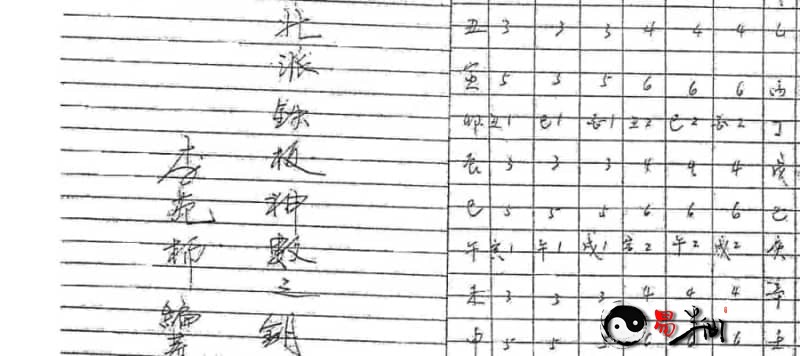 北派鉄板神數之
李
柳
編著
丑 3 3 3 4 4 4
寅 5 3 5 6 6 6 丙
卯 丑1 巳1 丑2 巳2 丁
辰 3 3 3 4 4 4 戊
巳 5 5 5 6 6 6 己
午 亥1 午1 戌1 亥2 午2 戌2 庚
未 3 3 3 4 4 4 辛
申 5 5 5 6 6 壬
易